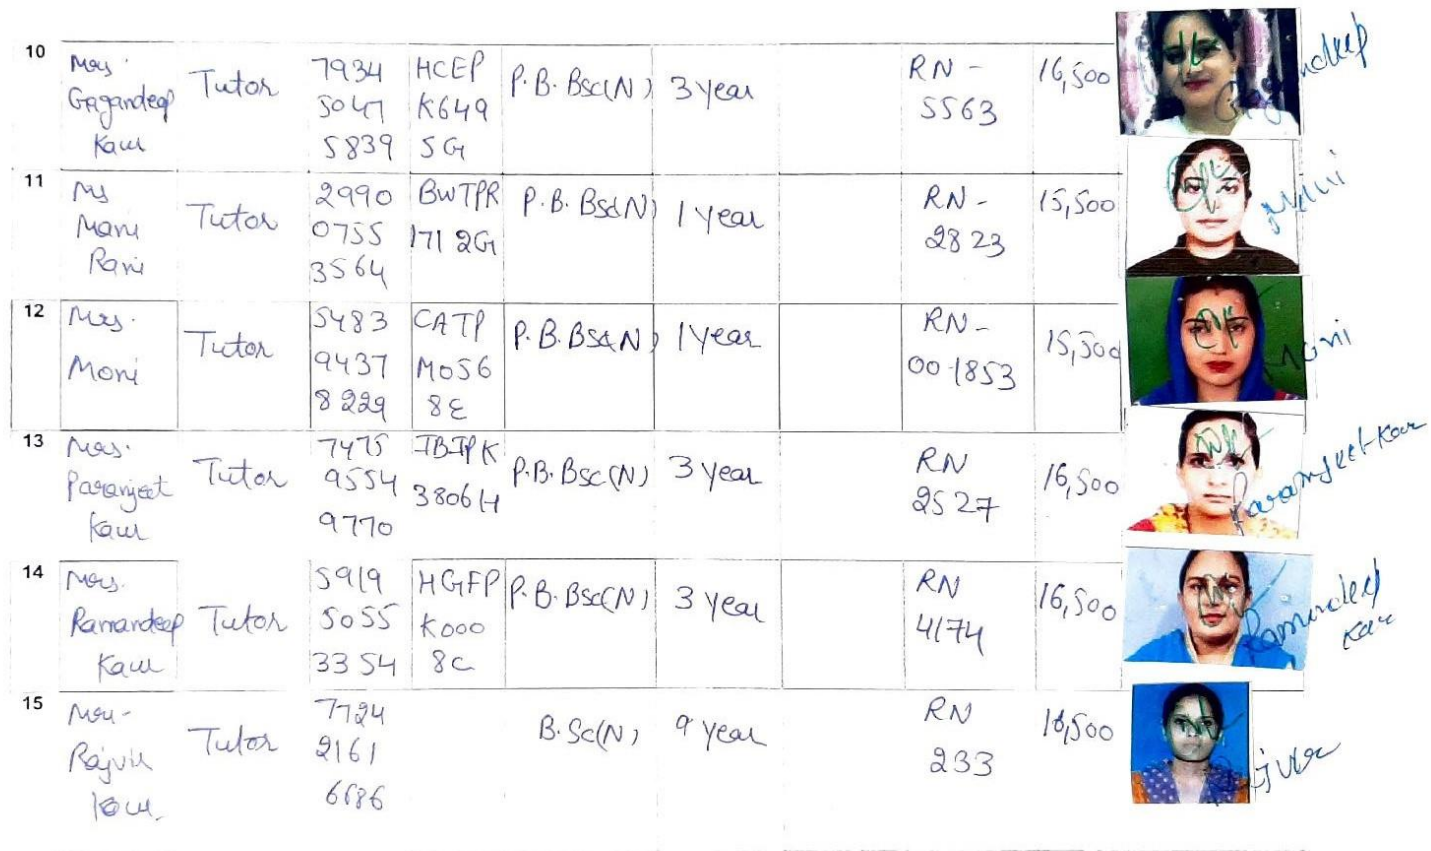 10 Mrs. Gagandeep Kaur Tutor 7934 5047 5839 HCEP K649 5G P.B. Bsc(N) 3 year RN - 5563 16,500
11 Ms Mani Rani Tutor 2990 0755 3564 BWTPR 1712G P.B. Bsc(N) 1 year RN - 2823 15,500 Mani
12 Mrs. Moni Tutor 5483 9437 8229 CATP M056 8E P.B. Bsc(N) 1 Year RN - 001853 15,500 Moni
13 Mrs. Paramjeet Kaur Tutor 7475 9554 9770 IBIPK 3806H P.B. Bsc(N) 3 year RN 2527 16,500 Paramjeet Kaur
14 Mrs. Ramandeep Kaur Tutor 5919 5055 3354 HGFP K000 8C P.B. Bsc(N) 3 year RN 4174 16,500 Ramandeep Kaur
15 Tutor 7724 2161 6686 B.Sc(N) 9 year RN 233